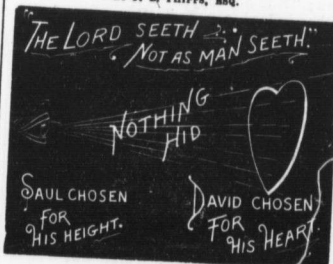 "THE LORD SEETH
NOT AS MAN SEETH."
NOTHING
HID
SAUL CHOSEN
FOR
HIS HEIGHT.
DAVID CHOSEN
FOR
HIS HEART